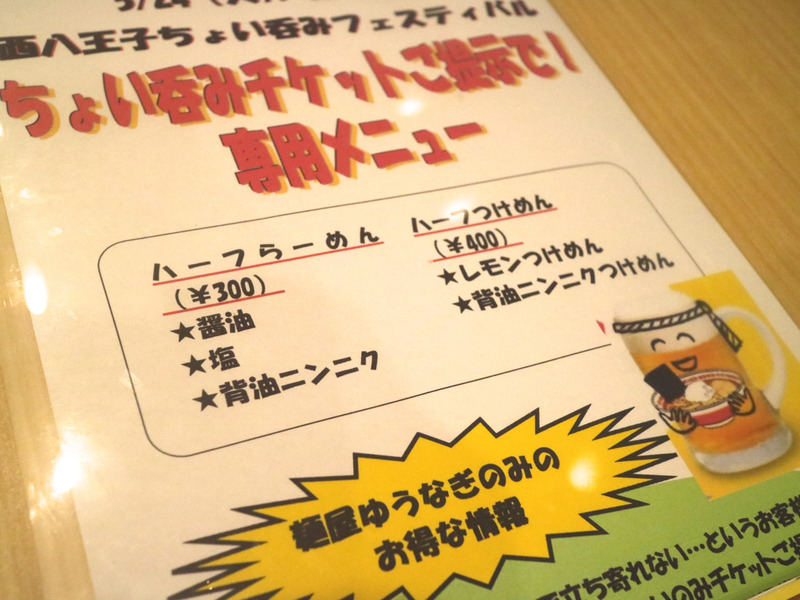 5/24
西八王子ちょい呑みフェスティバル
ちょい呑みチケットご提示で！
専用メニュー
ハーフらーめん
（￥300）
★醤油
★塩
★背油ニンニク
ハーフつけめん
（￥400）
★レモンつけめん
★背油ニンニクつけめん
麺屋ゆうなぎのみの
お得な情報
立ち寄れない…というお客様
のみチケットご提